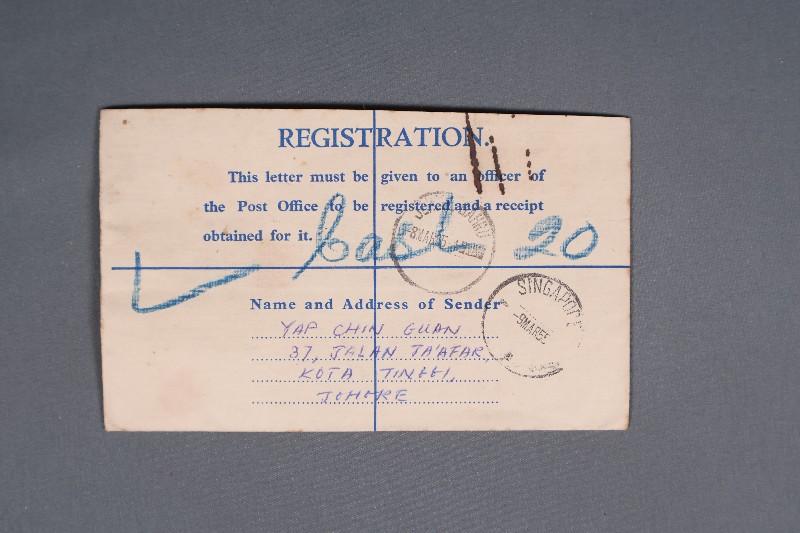 REGISTRATION.
This letter must be given to an officer of
the Post Office to be registered and a receipt
obtained for it.
20
8 MAR 55
Name and Address of Sender
SINGAPORE
-9MAR55
YAP CHIN GUAN
37, JALAN TA'AFAR,
KOTA TINGGI,
JOHORE